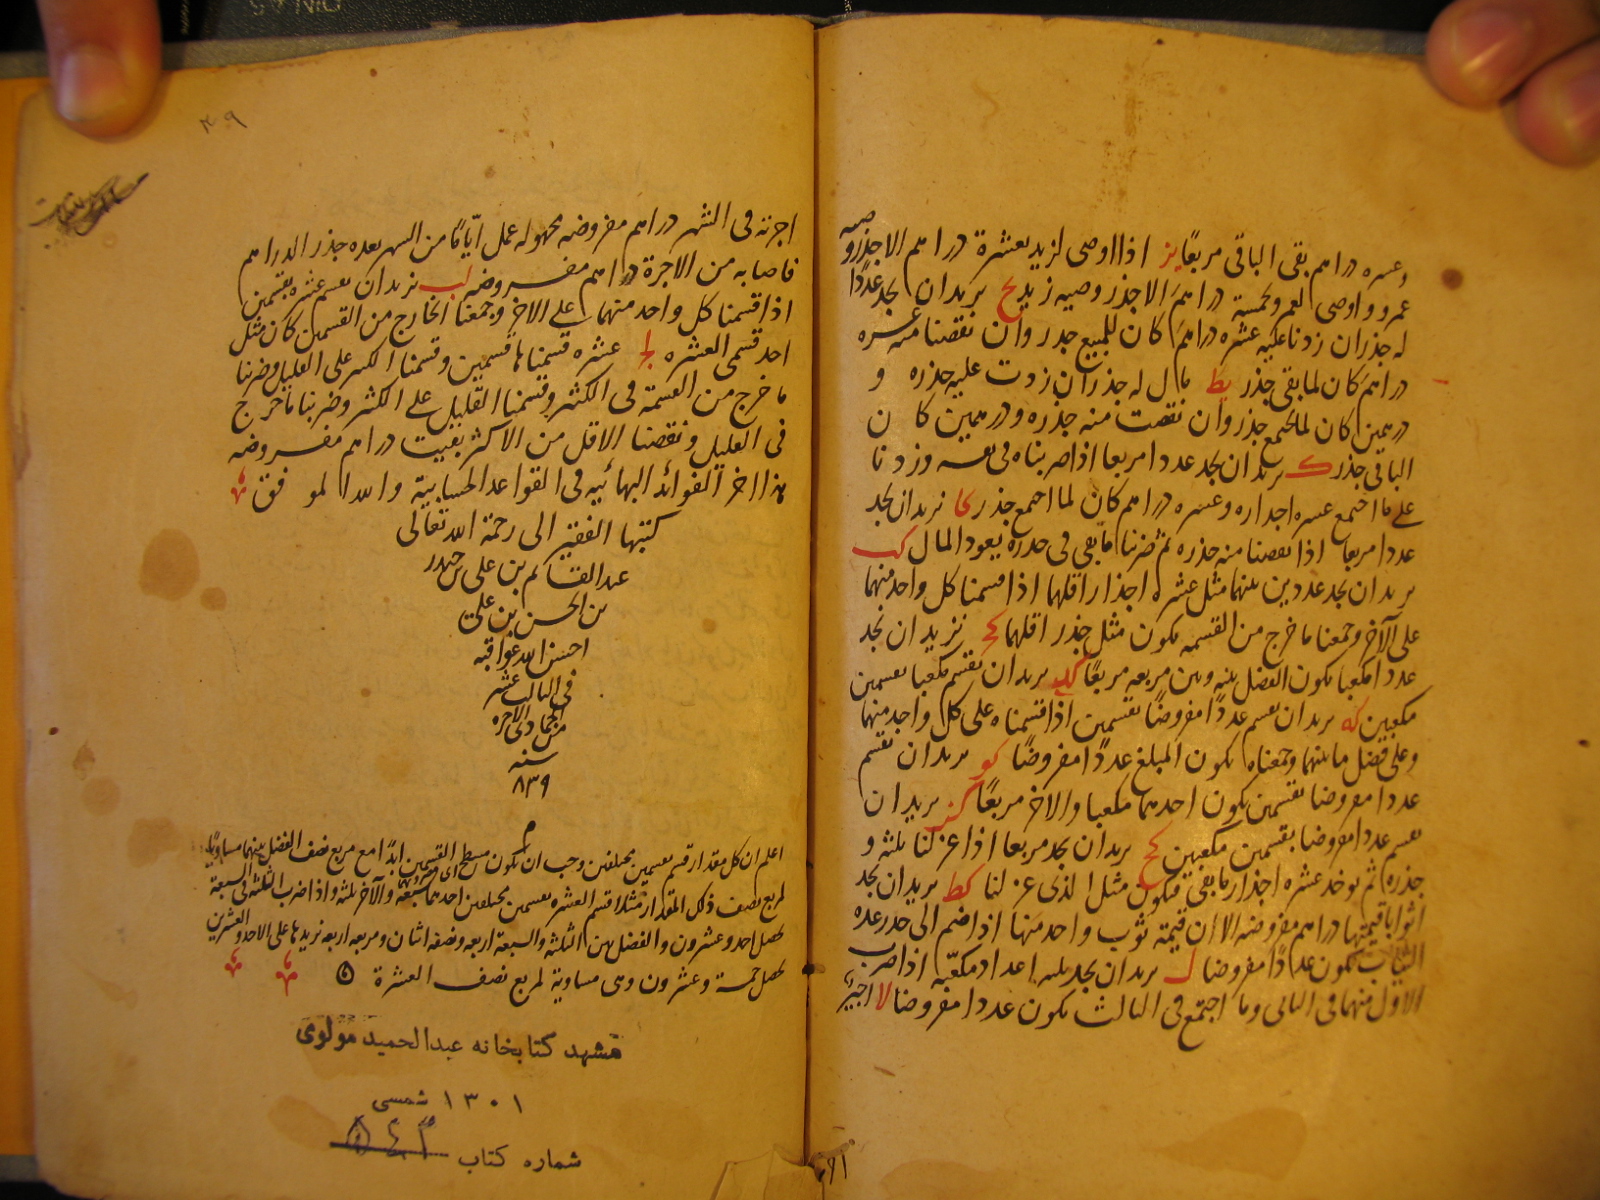 وعشره دراهم بقى الباقى مربعًا يز اذا اوصى لزيد بعشرة دراهم الا جذر وصيه
عمرو و اوصى لعمرو بخمسة دراهم الا جذر وصيه زيد يح نريد ان نجد عددًا
له جذر ان زدنا عليه عشره دراهم كان للمبلغ جذر وان نقصنا منه عشره
دراهم كان لما بقى جذر يط مال له جذر ان زدت عليه جذره و
درهمين كان لما اجتمع جذر وان نقصت منه جذره ودرهمين كان
الباقى جذر ك نريد ان نجد عددا مربعا اذا ضربناه فى نفسه وزدنا
على ما اجتمع عشره اجذاره وعشره دراهم كان لما اجتمع جذر كا نريد ان نجد
عددا مربعا اذا نقصنا منه جذره ثم ضربنا ما بقى فى جذره يعود المال كب
نريد ان نجد عددين بينهما مثل عشره اجذار اقلهما اذا قسمنا كل واحد منهما
على الآخر وجمعنا ما خرج من القسمه يكون مثل جذر اقلهما كج نريد ان نجد
عددا مكعبا يكون الفضل بينه وبين مربعه مربعًا كد نريد ان نقسم مكعبا بقسمين
مكعبين كه نريد ان نقسم عددًا مفروضًا بقسمين اذا قسمناه على كل واحد منهما
وعلى فضل ما بينهما وجمعناه يكون المبلغ عددًا مفروضًا كو نريد ان نقسم
عددا مفروضا بقسمين يكون احدهما مكعبا والاخر مربعًا كز نريد ان
نقسم عددا مفروضا بقسمين مكعبين كح نريد ان نجد مربعا اذا عزلنا ثلثه و
جذره ثم يوخد عشره اجذار ما بقى فيكون مثل الذى عزلنا كط نريد ان نجد
اثوابا قيمتها دراهم مفروضه الا ان قيمة ثوب واحد منها اذا ضم الى جذر عده
الثياب يكون عددًا مفروضا ل نريد ان نجد ثلثه اعداد مكعبه اذا ضرب
الاول منهما فى الثانى وما اجتمع فى الثالث يكون عددا مفروضا لا اجير
٤٠٩
اجرته فى الشهر دراهم مفروضه مجهوله عمل ايّامًا من الشهر بعده جذر الدراهم
فاصابه من الاجرة دراهم مفروضه لب نريد ان نقسم عشره بقسمين
اذا قسمنا كل واحد منهما على الاخر وجمعنا الخارج من القسمين كان مثل
احد قسمى العشره لج عشره قسمناها قسمين وقسمنا الكثير على القليل وضربنا
ما خرج من القسمة فى الكثير وقسمنا القليل على الكثير وضربنا ما خرج
فى القليل ونقصنا الاقل من الاكثر بقيت دراهم مفروضه
هذا اخر الفوائد البهائيه فى القواعد الحسابية والله الموفق
كتبها الفقير الى رحمة الله تعالى
عبد القاسم بن على بن حيدر
بن الحسن بن على
احسن الله عواقبه
فى الثالث عشر
من جمادى الاخره
سنه
٨٣٩
اعلم ان كل مقدار قسم بقسمين مختلفين وجب ان يكون مسطح القسمين ابدًا مع مربع نصف الفضل بينهما مساويًا
لمربع نصف ذلك المقدار مثلا اقسم العشره بقسمين مختلفين احدهما سبعة والآخر ثلثه واذا ضرب الثلثه فى السبعة
يحصل احد وعشرون والفضل بين الثلثه والسبعة اربعه ونصفه اثنان ومربعه اربعه نزيدها على الاحد والعشرين
يحصل خمسة وعشرون وهى مساوية لمربع نصف العشرة
مشهد كتابخانه عبدالحميد مولوى
١٣٠١ شمسى
شماره كتاب